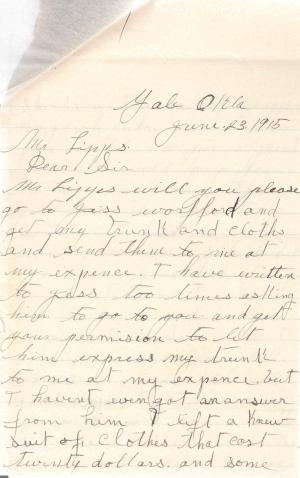 Yale Okla
June 23, 1915
Mr Lipps.
Dear Sir
Mr Lipyes will you please
go to Jass worfford and
get my trunk and cloths
and send them to me at
my expence. I have written
to Jass too times asking
him to go to you and get
your permision to let
him express my trunk
to me at my expence. but
I havent even got an answer
from him I left a knew
suit of clothes that cost
twenty dollars. and some